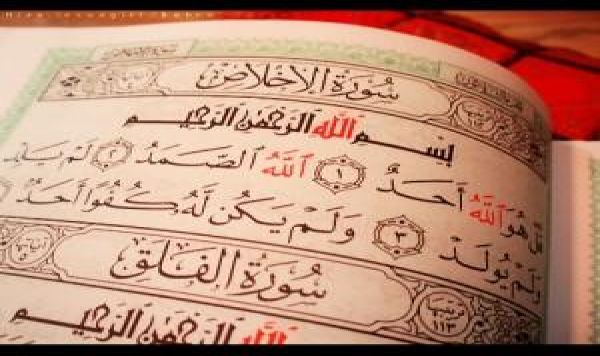 سُورَةُ الإِخْلَاصِ
بِسْمِ اللَّهِ الرَّحْمَنِ الرَّحِيمِ
قُلْ هُوَ اللَّهُ أَحَدٌ ١ اللَّهُ الصَّمَدُ ٢ لَمْ يَلِدْ
وَلَمْ يُولَدْ ٣ وَلَمْ يَكُن لَّهُ كُفُوًا أَحَدٌ
سُورَةُ الْفَلَقِ
ترتيبها ١١٣
بِسْمِ اللَّهِ الرَّحْمَنِ الرَّحِيمِ